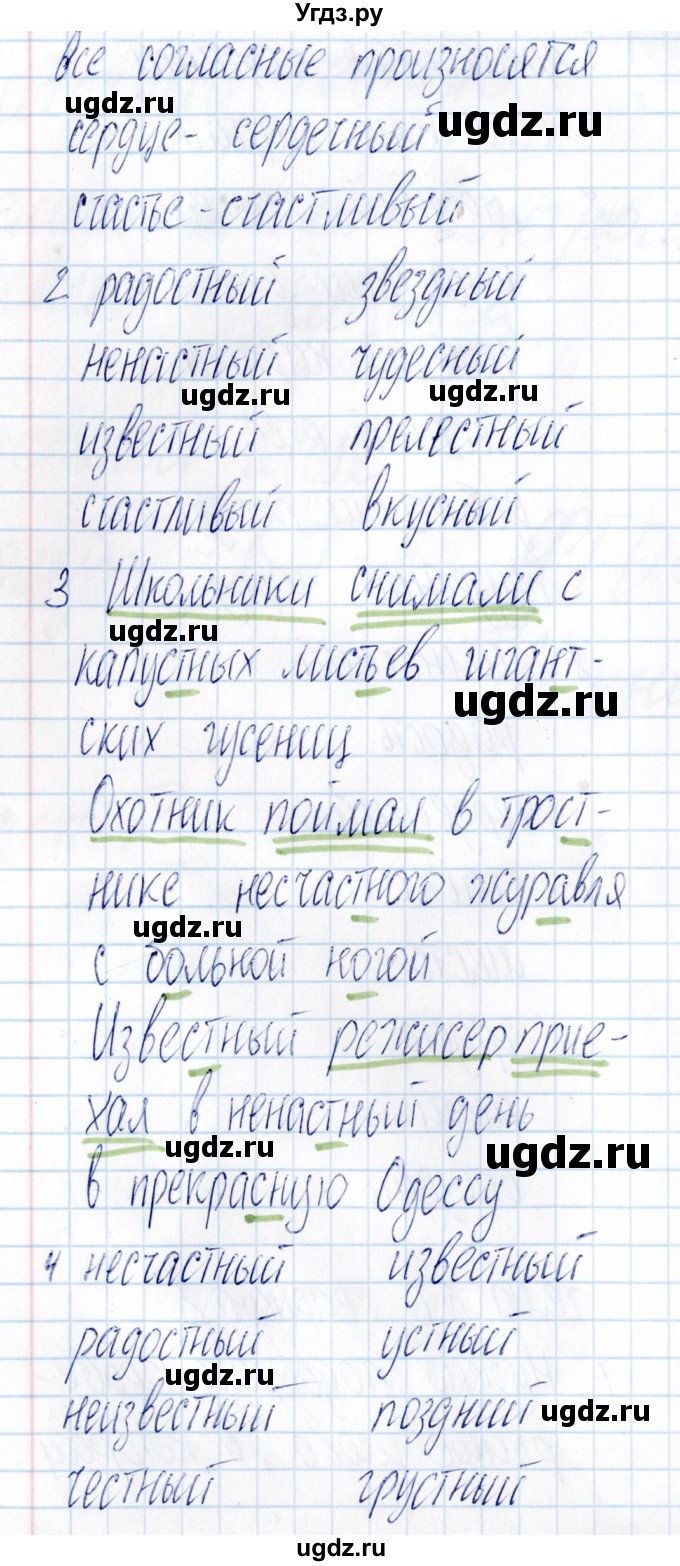 Угдз.ру
все согласные произносятся
ugdz.ru ugdz.ru
сердце- сердечный
счастье-счастливый
2 радостный звездный
ненастный чудесный
ugdz.ru ugdz.ru
известный прелестный
счастливый вкусный
3 Школьники снимали с
ugdz.ru
капустных листьев гигант-
ugdz.ru
ских гусениц
Охотник поймал в трост-
нике несчастного журавля
ugdz.ru
с больной ногой
Известный режисер прие-
хал в ненастный день
ugdz.ru ugdz.ru
в прекрасную Одессу
4 несчастный известный
радостный устный
ugdz.ru
неизвестный поздний
ugdz.ru
честный грустный
ugdz.ru